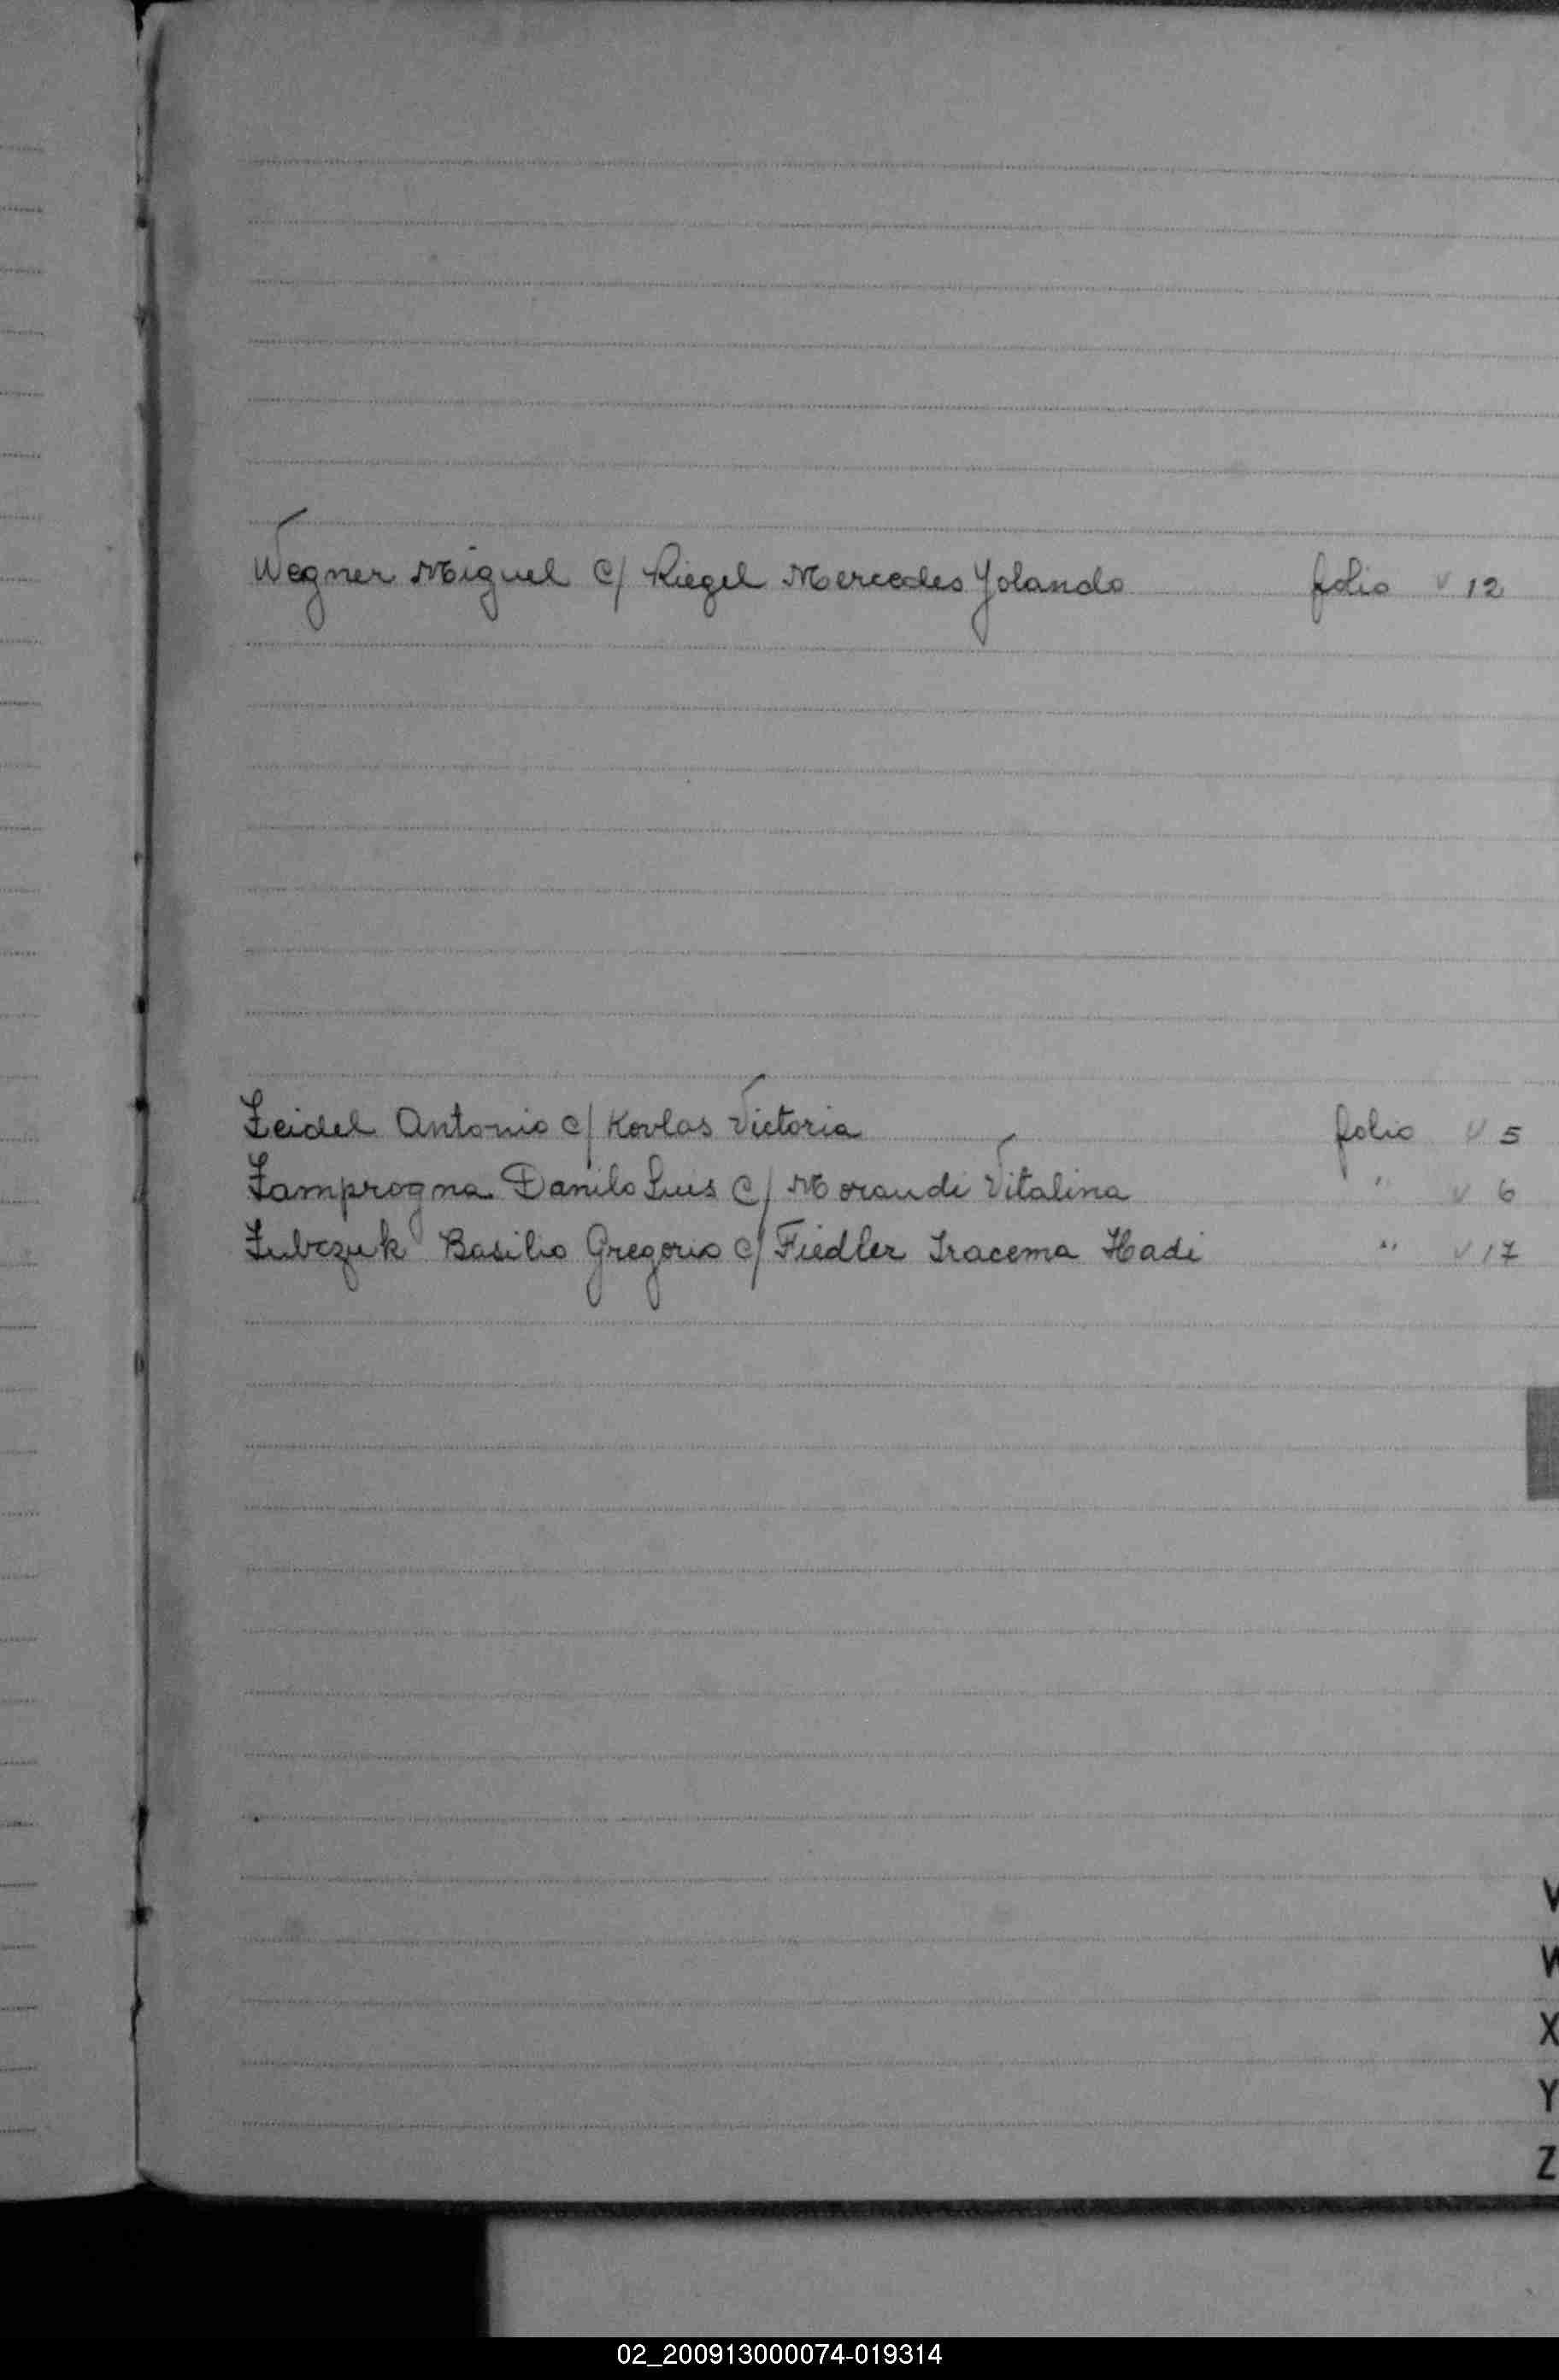 Wegner Miguel c/ Riegel Mercedes Yolanda folio v 12
Zeidel Antonio c/ Kovlas Victoria folio v 5
Zamprogna Danilo Luis c/ Morandi Vitalina " v 6
Zubczuk Basilio Gregorio c/ Fiedler Iracema Hadi " v 17
V
W
X
Y
Z
02_200913000074-019314